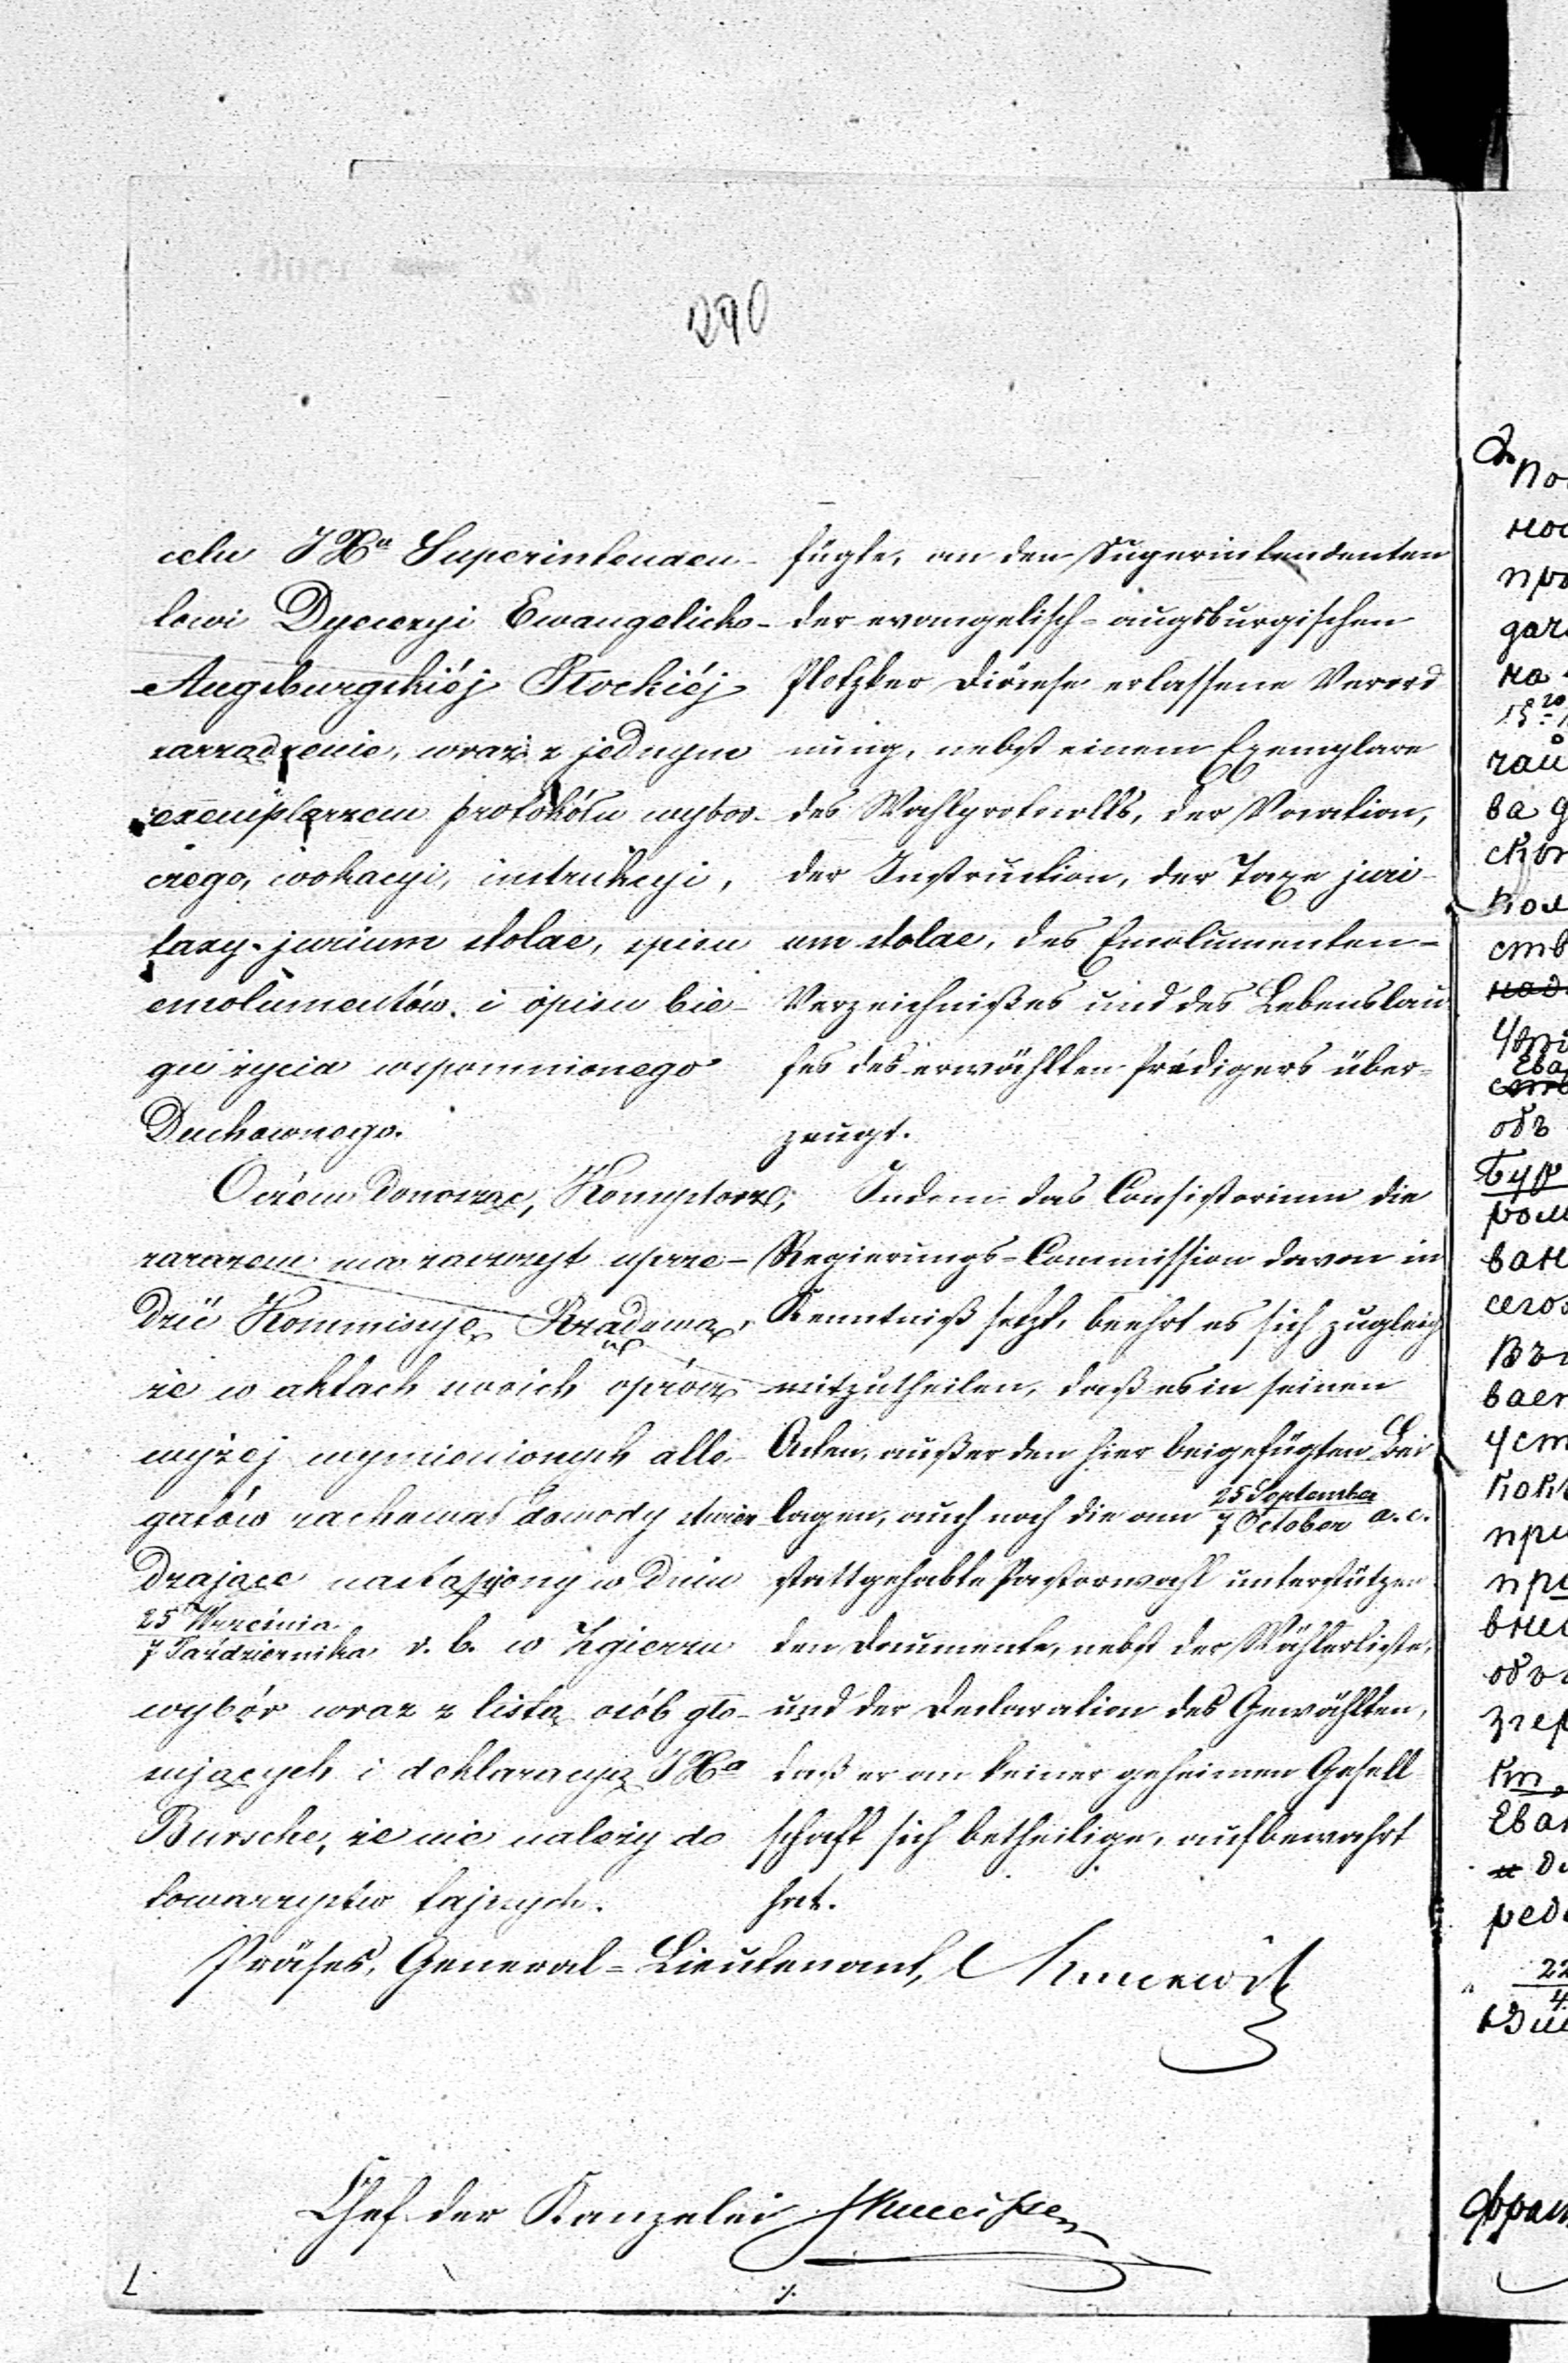 290
celu JXa Superintenden-
towi Dyecezyi Ewangelicko-
Augsburgskiéj Płockiéj
zarządzenie, wraz z jednym
exemplarzem protokółu wybor-
czego, wokacyi, instrukcyi,
taxy jurium stolae, opisu
emolumentów i opisu bie-
gu życia wspomnionego
Duchownego.
Oczem donosząc, Konsystorz,
zarazem ma zaszczyt uprze-
dzić Kommisyję Rządową,
że w aktach swoich oprócz
wyżej wymienionych alle-
gatów zachował dowody stwier
dzające nastąpiony w dniu
25 Września
7 Października r. b. w Zgierzu
wybór wraz z listą osób gło-
sujących i deklaracyą JXa
Bursche, że nie należy do
towarzystw tajnych.
fügte, an den Superintendenten
der evangelisch-augsburgischen
Plotzker Diöcese erlassene Verord
nung, nebst einem Exemplare
des Wahlprotocolls, der Vocation,
der Instruction, der Taxe juri-
um stolae, des Emolumenten-
Verzeichnißes und des Lebenslau
fes des erwählten Predigers über-
zeugt.
Indem das Consistorium die
Regierungs-Commission davon in
Kenntniß setzt, beehrt es sich zugleich
mitzutheilen, daß es in seinen
Acten, außer den hier beigefügten Bei
lagen, auch noch die am 25 September
7 October a. c.
stattgehabte Pastorwahl unterstützen
den Documente, nebst der Wählerliste,
und der Declaration des Gewählten,
daß er an keiner geheimen Gesell
schaft sich betheilige, aufbewahrt
hat.
Präses, General-Lieutenant,
Chef der Kanzelei